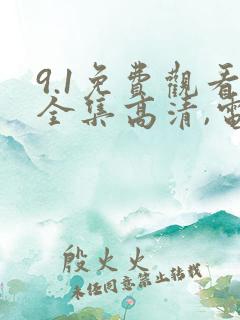 9.1免費觀看
全集高清,電
殷火火
未经同意禁止转载